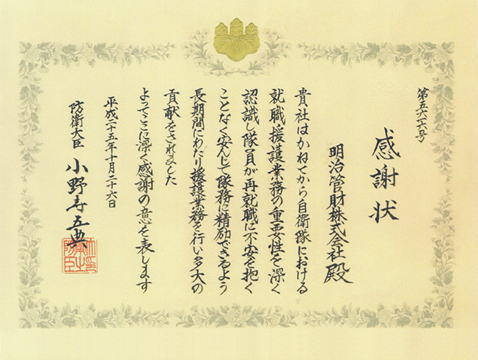 感謝状
第五六七号
明治管財株式会社殿
貴社はかねてから自衛隊における
就職援護業務の重要性を深く
認識し隊員が再就職に不安を抱く
ことなく安んじて隊務に精励できるよう
長期間にわたり援護業務を行い多大の
貢献をされました
よってここに深く感謝の意を表します
平成二十五年十月二十六日
防衛大臣 小野寺五典